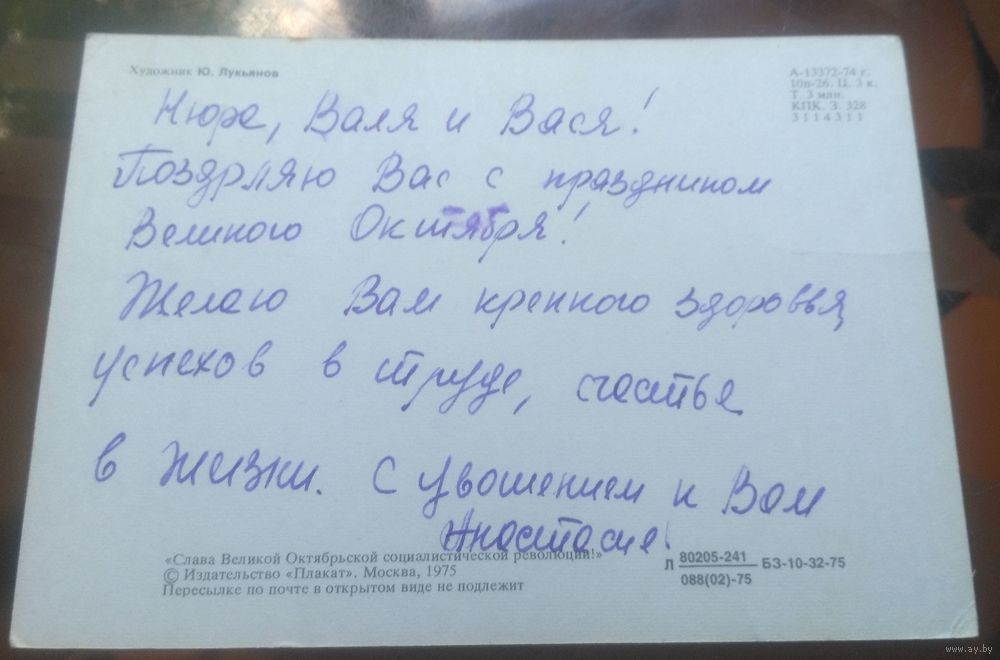 Художник Ю. Лукьянов
А-13372-74 г.
10п-26. Ц. 3 к.
Т. 3 млн.
КПК. З. 328
3114311
Нюра, Валя и Вася!
Поздрляю Вас с праздником
Великого Октября!
Желаю Вам крепкого здоровья
успехов в труде, счастье
в жизни. С увошением к Вам
Анастасия!
«Слава Великой Октябрьской социалистической революции!»
© Издательство «Плакат». Москва, 1975
Пересылке по почте в открытом виде не подлежит
Л 80205-241 БЗ-10-32-75
088(02)-75
www.ay.by